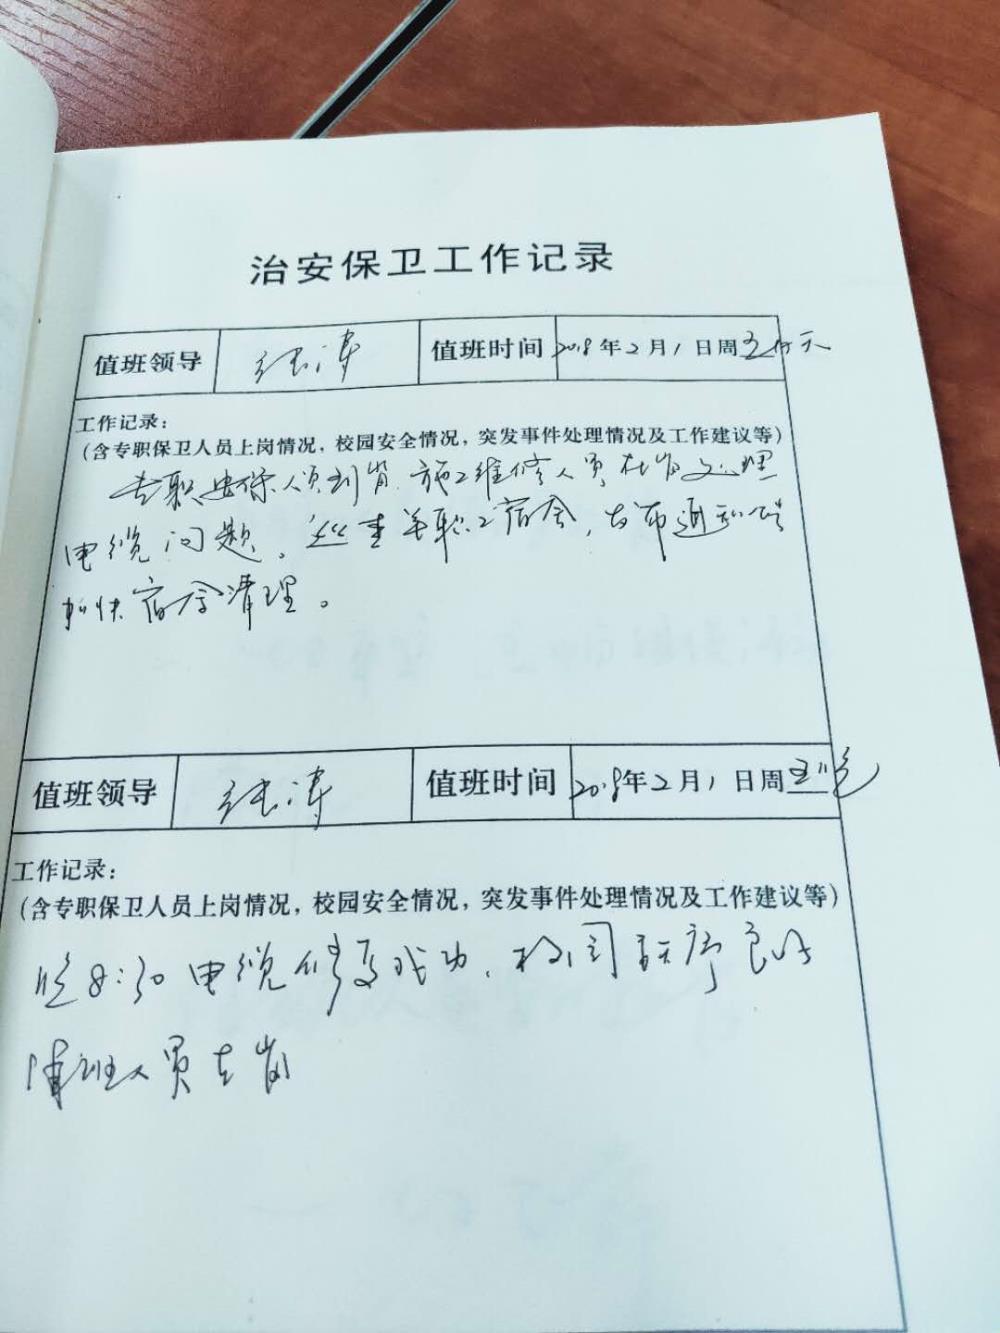 治安保卫工作记录
值班领导 张涛 值班时间 2019年2月1日周五白天
工作记录：
（含专职保卫人员上岗情况，校园安全情况，突发事件处理情况及工作建议等）
专职安保人员到岗，施工维修人员在岗处理
电缆问题。巡查单职工宿舍，发布通知
加快宿舍清理。
值班领导 张涛 值班时间 2019年2月1日周五晚
工作记录：
（含专职保卫人员上岗情况，校园安全情况，突发事件处理情况及工作建议等）
晚8:30电缆修复成功，校园秩序良好
值班人员在岗